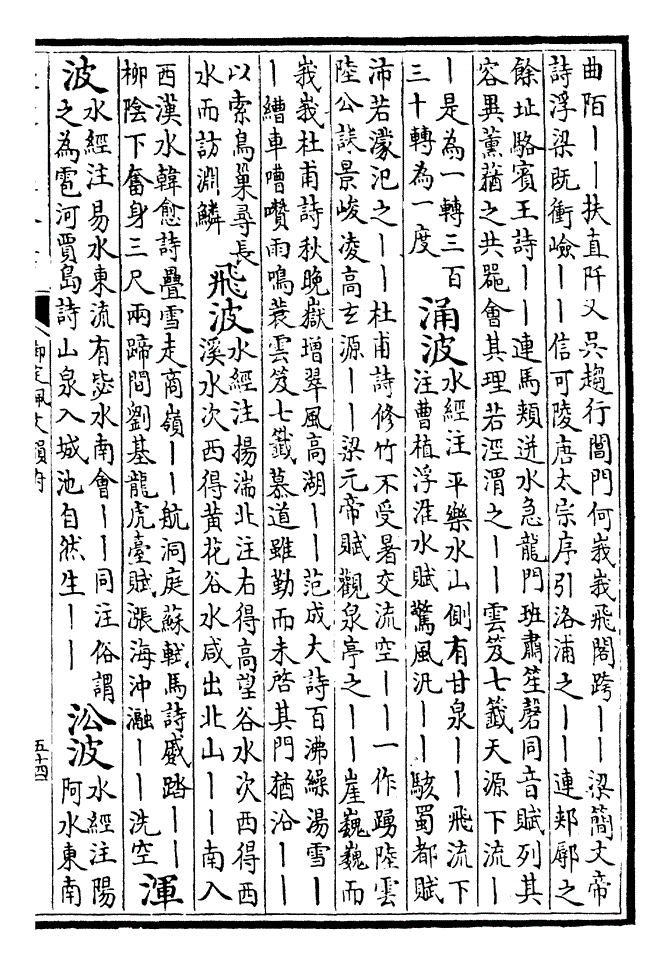 曲陌丨丨扶直阡又吳趨行閶門何峩峩飛閣跨丨丨梁簡文帝
詩浮梁既衝嶮丨丨信可陵唐太宗序引洛浦之丨丨連郟鄏之
餘址駱賓王詩丨丨連馬頰迸水急龍門班肅笙磬同音賦列其
容異薰蕕之共噐會其理若涇渭之丨丨雲笈七籤天源下流丨
丨是為一轉三百
三十轉為一度
涌波
水經注平樂水山側有甘泉丨丨飛流下
注曹植浮淮水賦驚風汎丨丨駭蜀都賦
沛若濛汜之丨丨杜甫詩修竹不受暑交流空丨丨一作踴陸雲
陸公誄景峻凌高玄源丨丨梁元帝賦觀泉亭之丨丨崖巍巍而
峩峩杜甫詩秋晚嶽增翠風高湖丨丨范成大詩百沸繰湯雪丨
丨繅車嘈囋雨鳴蓑雲笈七籤慕道雖勤而未啓其門猶沿丨丨
以索鳥巢尋長
水而訪淵鱗
飛波
水經注揚湍北注右得高望谷水次西得西
溪水次西得黃花谷水咸出北山丨丨南入
西漢水韓愈詩疊雪走商嶺丨丨航洞庭蘇軾馬詩蹙踏丨丨
柳陰下奮身三尺兩蹄間劉基龍虎臺賦漲海沖瀜丨丨洗空
渾
波
水經注易水東流有毖水南會丨丨同注俗謂
之為雹河賈島詩山泉入城池自然生丨丨
㳂波
水經注陽
阿水東南
御定佩文韻府
五十四